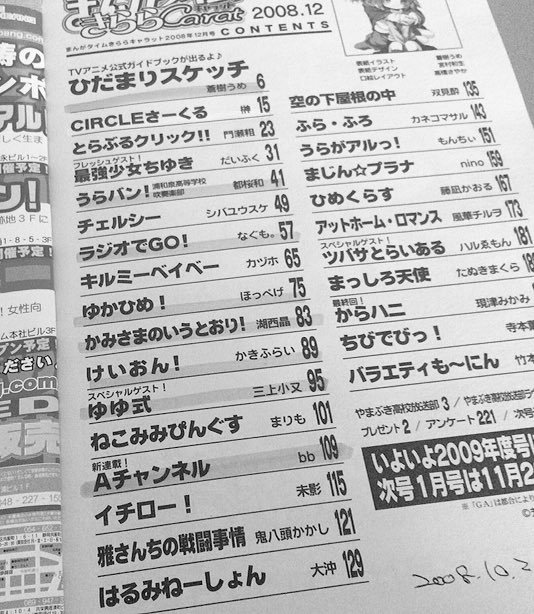 まんがタイム
きららCarat
キャラット
2008.12
まんがタイムきららキャラット2008年12月号 CONTENTS
TVアニメ公式ガイドブックが出るよ♪
ひだまりスケッチ 蒼樹うめ 6
CIRCLEさーくる 榊 15
とらぶるクリック!! 門瀬粗 23
フレッシュゲスト!
最強少女ちゆき だいふく 31
うらバン! 浦和泉高等学校吹奏楽部 都桜和 41
チェルシー シバユウスケ 49
ラジオでGO! なぐも。 57
キルミーベイベー カヅホ 65
ゆかひめ! ほっぺげ 75
かみさまのいうとおり! 湖西晶 83
けいおん! かきふらい 89
スペシャルゲスト!
ゆゆ式 三上小又 95
ねこみみぴんぐす まりも 101
新連載!
Aチャンネル bb 109
イチロー! 未影 115
雅さんちの戦闘事情 鬼八頭かかし 121
はるみねーしょん 大沖 129
表紙イラスト 蒼樹うめ
表紙デザイン 宮村和生
口絵レイアウト 高橋さやか
空の下屋根の中 双見酔 135
ふら・ふろ カネコマサル 143
うらがアルっ! もんちぃ 151
まじん☆プラナ nino 159
ひめくらす 藤凪かおる 167
アットホーム・ロマンス 風華チルヲ 173
スペシャルゲスト!
ツバサとらいある ハルゑもん 181
まっしろ天使 たぬきまくら 18
最終回!
からハニ 現津みかみ
ちびでびっ! 寺本
バラエティも~にん 竹本
やまぶき高校放送部 3 / やまぶき高校放送部ラ
プレゼント 2 / アンケート 221 / 次号
いよいよ2009年度号
次号1月号は11月2
2008.10.2
ン!
跡地3Fに
1・8・5・3F
女性向
ム本社ビル3F
ださい。
販売
048-227-15